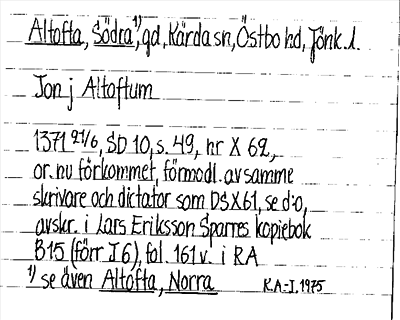 Altofta, Södra,¹⁾ gd, Kärda sn, Östbo hd, Jönk. l.
Jon j Altoftum
1371 21/6, SD 10, s. 49, nr X 62,
or. nu förkommet, förmodl. av samme
skrivare och dictator som DS X61, se d:o,
avskr. i Lars Eriksson Sparres kopiebok
B15 (förr I 6), fol. 161 v. i RA
¹⁾ se även Altofta, Norra
K.A.-I. 1975